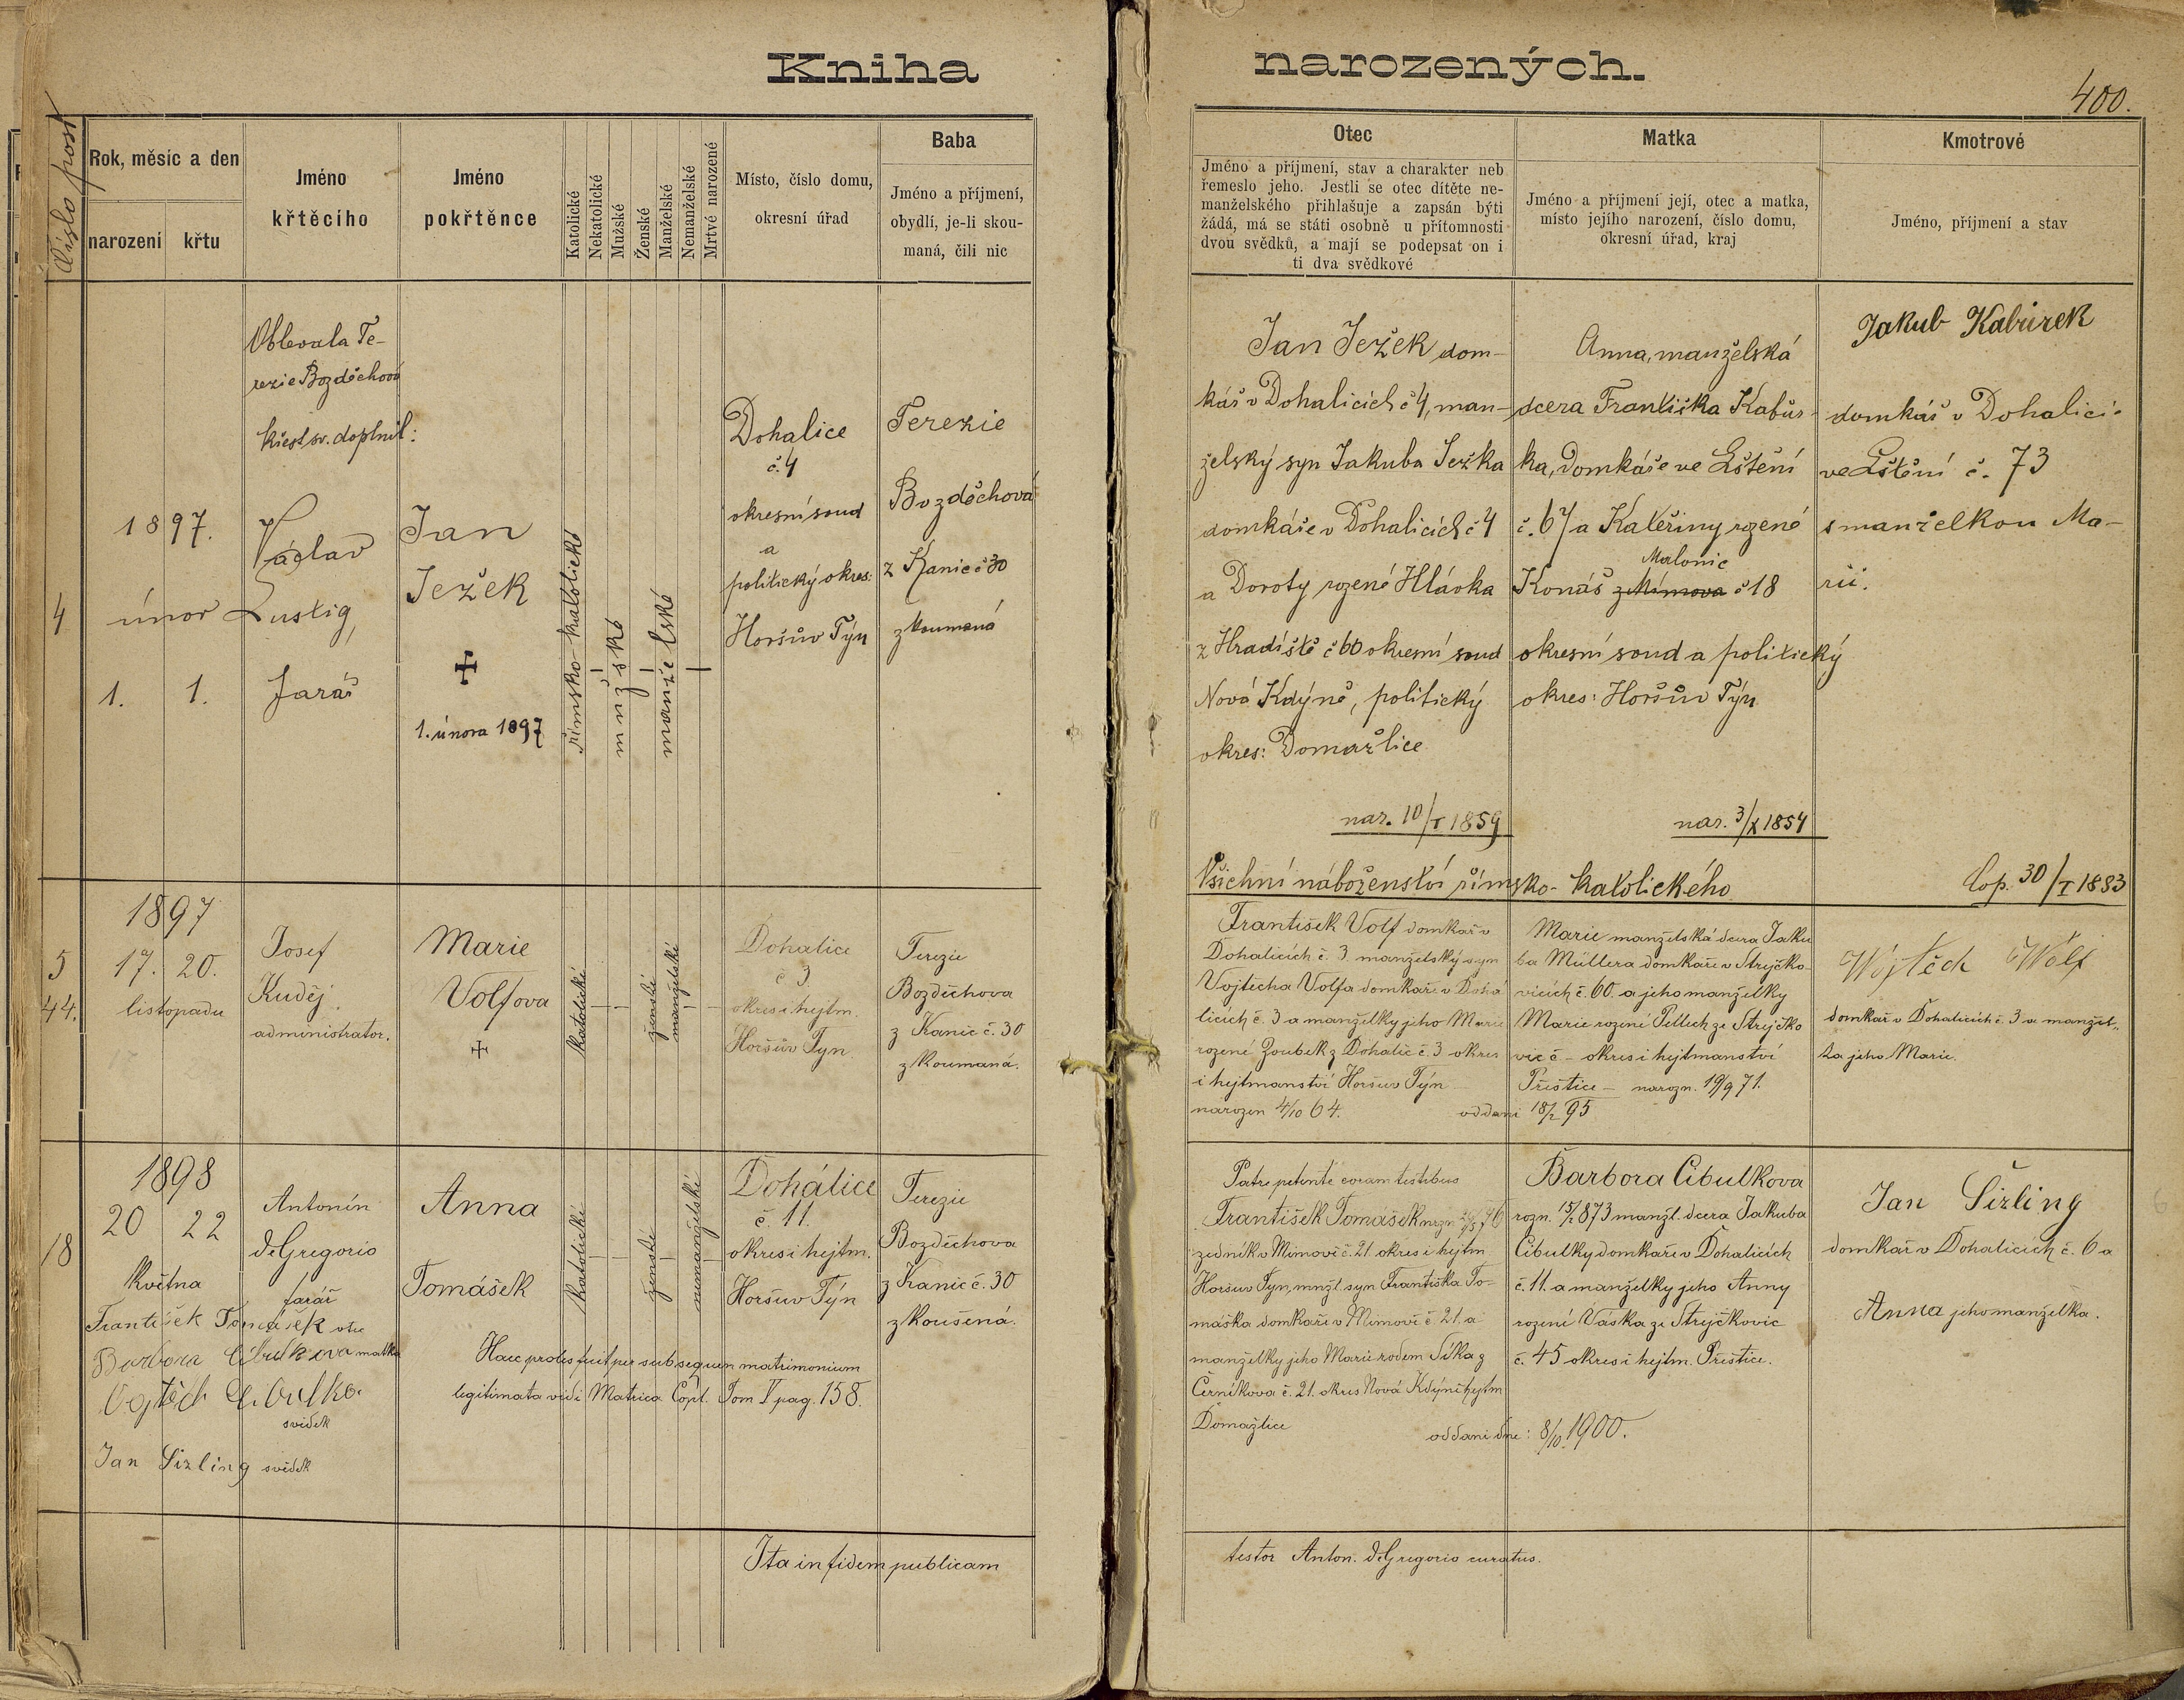 Kniha
narozených.
400.
Číslo post
Rok, měsíc a den
narození
křtu
Jméno
křtěcího
Jméno
pokřtěnce
Katolické
Nekatolické
Mužské
Ženské
Manželské
Nemanželské
Mrtvé narozené
Místo, číslo domu,
okresní úřad
Baba
Jméno a příjmení,
obydlí, je-li skou-
maná, čili nic
Otec
Jméno a příjmení, stav a charakter neb
řemeslo jeho. Jestli se otec dítěte ne-
manželského přihlašuje a zapsán býti
žádá, má se státi osobně u přítomnosti
dvou svědků, a mají se podepsat on i
ti dva svědkové
Matka
Jméno a příjmení její, otec a matka,
místo jejího narození, číslo domu,
okresní úřad, kraj
Kmotrové
Jméno, příjmení a stav
4
1897.
únor
1. 1.
Oblevala Te-
rezie Bozděchová
křest sv. doplnil:
Václav
Lustig,
farář
Jan
Ježek
+
1. února 1897
římsko-katolické
mužské
manželské
Dohalice
č. 4
okresní soud
a
politický okres:
Horšův Týn
Terezie
Bozděchová
z Kanic č 30
zkoumaná
Jan Ježek dom-
kář v Dohalicích č 4, man-
želský syn Jakuba Ježka
domkáře v Dohalicích č 4
a Doroty rozené Hlávka
z Hradiště č 60 okresní soud
Nová Kdýně, politický
okres: Domažlice
nar. 10/I 1859
Anna, manželská
dcera Františka Kabůr-
ka, domkáře ve Lštění
č. 67 a Kateřiny rozené
Malonic
Konáš z Mímova č 18
okresní soud a politický
okres: Horšův Týn
nar. 3/X 1854
Jakub Kabůrek
domkář v Dohalici-
ve Lštění č. 73
s manželkou Ma-
rií.
Všichni náboženství římsko-katolického
Cop. 30/I 1883
5
44.
1897
17. 20.
listopadu
Josef
Kuděj
administrator.
Marie
Volfova
+
katolické
ženské
manželské
Dohalice
č 3.
okres i hejtm.
Horšův Týn.
Terezie
Bozděchova
z Kanic č. 30
zkoumaná.
František Volf domkář v
Dohalicích č. 3. manželský syn
Vojtěcha Volfa domkáře v Doha
licích č. 3 a manželky jeho Marie
rozené Zoubek z Dohalic č. 3 okres
i hejtmanství Horšuv Týn
narozen 4/10 64.
oddani 18/2 95
Marie manželská dcera Jaku
ba Müllera domkáře v Strýčko-
vicích č. 60. a jeho manželky
Marie rozené Pellech ze Strýčko
vic č – okres i hejtmanství
Přeštice – narozn. 19/9 71.
Wojtěch Wolf
domkař v Dohalicích č. 3 a manžel„
ka jeho Marie.
18
1898
20 22
května
Antonín
deGregorio
farář
Anna
Tomášek
katolické
ženské
nemanželské
Dohálice
č. 11.
okres i hejtm.
Horšuv Týn
Terezie
Bozděchova
z Kanic č. 30
zkoušená.
František Tomášek otec
Barbora Cibulkova matka
Vojtěch Cibulka
svědek
Jan Sizling svědek
Haec proles fuit per subsequen matrimonium
legitimata vidi Matrica Copl. Tom V pag. 158.
Patre petente coram testibus
František Tomášek
zedník v Mimově č. 21. okres i hejtm
Horšuv Týn, mnžl. syn Františka To-
máška domkaře v Mimově č 21. a
manželky jeho Marie rodem Síka z
Černíkova č. 21. okres Nová Kdýně hejtm
Domažlice
oddani dne: 8/10 1900.
Barbora Cibulkova
rozn. 15/2 873 manžl. dcera Jakuba
Cibulky domkaře v Dohalicích
č. 11. a manželky jeho Anny
rozené Vaska ze Strýčkovic
č. 45 okres i hejtm. Přeštice.
Jan Šizling
domkař v Dohalicích č. 6 a
Anna jeho manželka.
Ita in fidem publicam
testor Anton. deGregorio curatus.